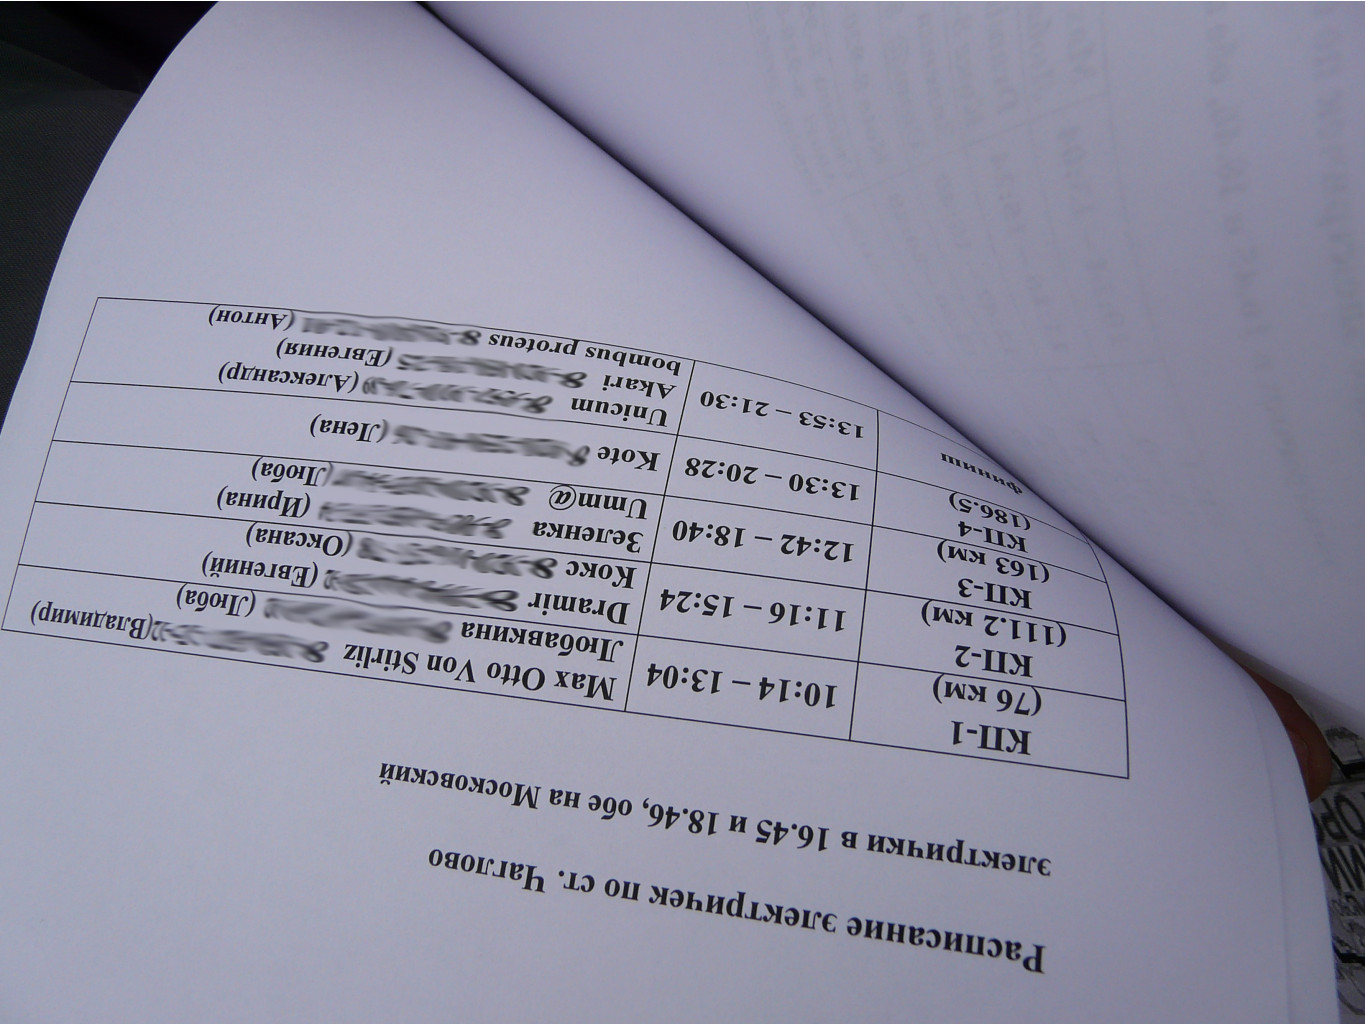 Расписание электричек по ст. Чаглово
электрички в 16.45 и 18.46, обе на Московский
КП-1
(76 км)
10:14 – 13:04
Max Otto Von Stirliz (Владимир)
Любавкина (Люба)
КП-2
(111.2 км)
11:16 – 15:24
Dramir (Евгений)
Кокс (Оксана)
КП-3
(163 км)
12:42 – 18:40
Зеленка (Ирина)
Umm@ (Люба)
КП-4
(186.5)
13:30 – 20:28
Kote (Лена)
финиш
13:53 – 21:30
Unicum (Александр)
Akari (Евгения)
bombus proteus (Антон)